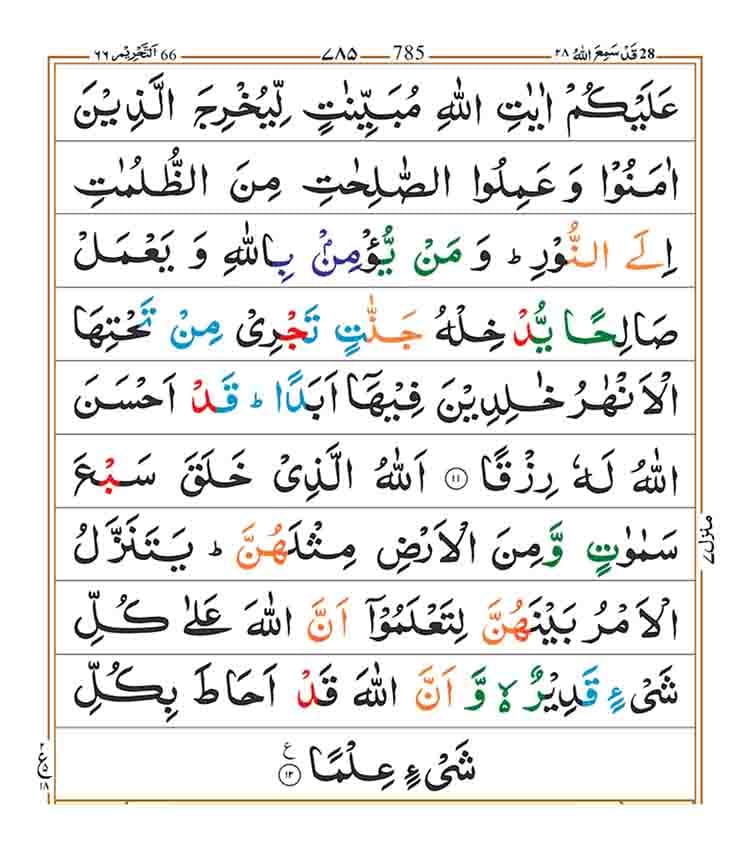 28 قَدْ سَمِعَ اللّٰهُ ٢٨
785 ٧٨٥
66 اَلتَّحْرِيْم ٦٦
عَلَيْكُمْ اٰيٰتِ اللّٰهِ مُبَيِّنٰتٍ لِّيُخْرِجَ الَّذِيْنَ
اٰمَنُوْا وَ عَمِلُوا الصّٰلِحٰتِ مِنَ الظُّلُمٰتِ
اِلَى النُّوْرِ ؕ وَ مَنْ يُّؤْمِنْۢ بِاللّٰهِ وَ يَعْمَلْ
صَالِحًا يُّدْخِلْهُ جَنّٰتٍ تَجْرِيْ مِنْ تَحْتِهَا
الْاَنْهٰرُ خٰلِدِيْنَ فِيْهَاۤ اَبَدًا ؕ قَدْ اَحْسَنَ
اللّٰهُ لَهٗ رِزْقًا ۝۱۱ اَللّٰهُ الَّذِيْ خَلَقَ سَبْعَ
سَمٰوٰتٍ وَّ مِنَ الْاَرْضِ مِثْلَهُنَّ ؕ يَتَنَزَّلُ
الْاَمْرُ بَيْنَهُنَّ لِتَعْلَمُوْۤا اَنَّ اللّٰهَ عَلٰى كُلِّ
شَيْءٍ قَدِيْرٌ ۙ۬ وَّ اَنَّ اللّٰهَ قَدْ اَحَاطَ بِكُلِّ
شَيْءٍ عِلْمًا ۝۱۲ ع
منزل ٧
٢ ع ١٨